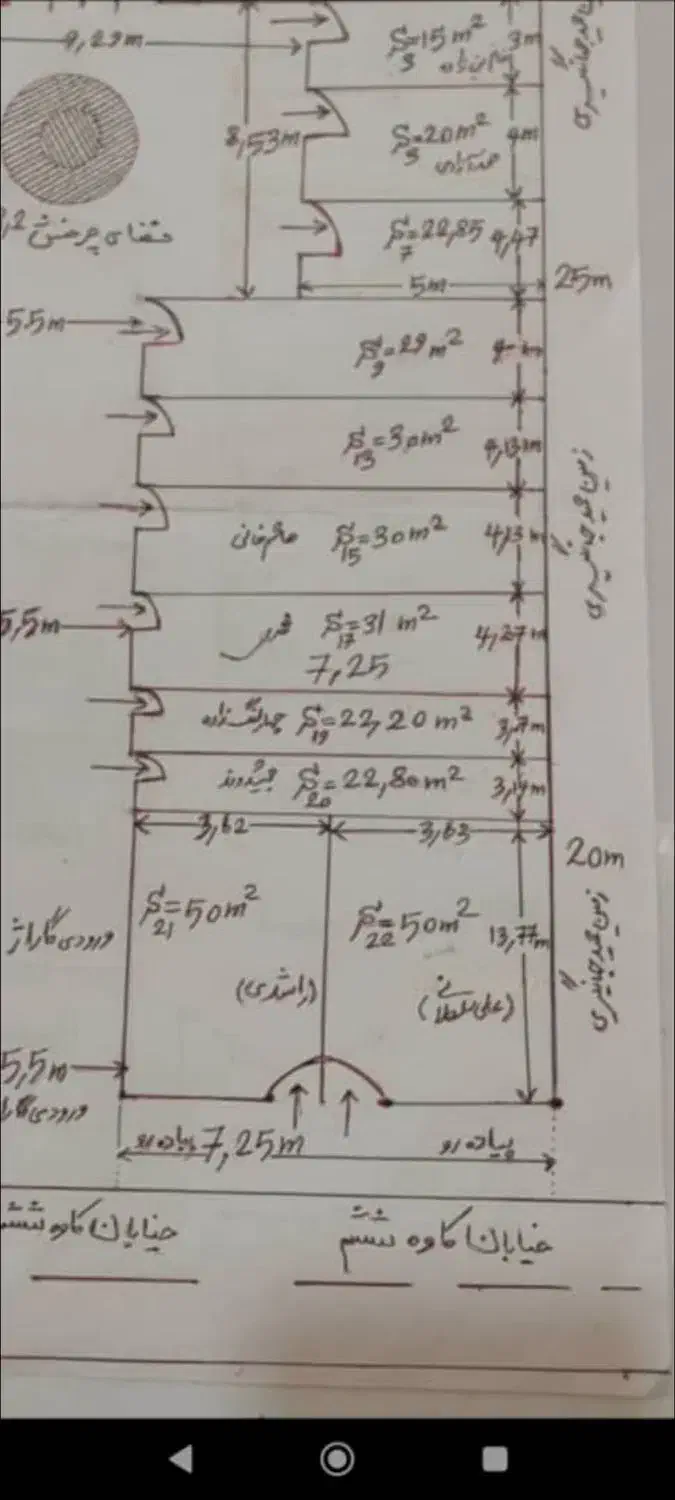 9,29m
S3=15m²
3m
8,53m
S5=20m²
4m
فضای چرخش
S7=22,85
4,47
5m
25m
5.5m
S9=29m²
S13=30m²
4,13m
S15=30m²
4,13m
زمین
5,5m
S17=31 m²
4,27m
7,25
S19=22,20m²
S20=22,80m²
3,14m
3,62
3,63
20m
S21=50m²
S22=50m²
13,77m
ورودی گاراژ
(راشدی)
زمین
5,5m
ورودی
پیاده رو
7,25m
پیاده رو
خیابان کاوه ششم
خیابان کاوه ششم